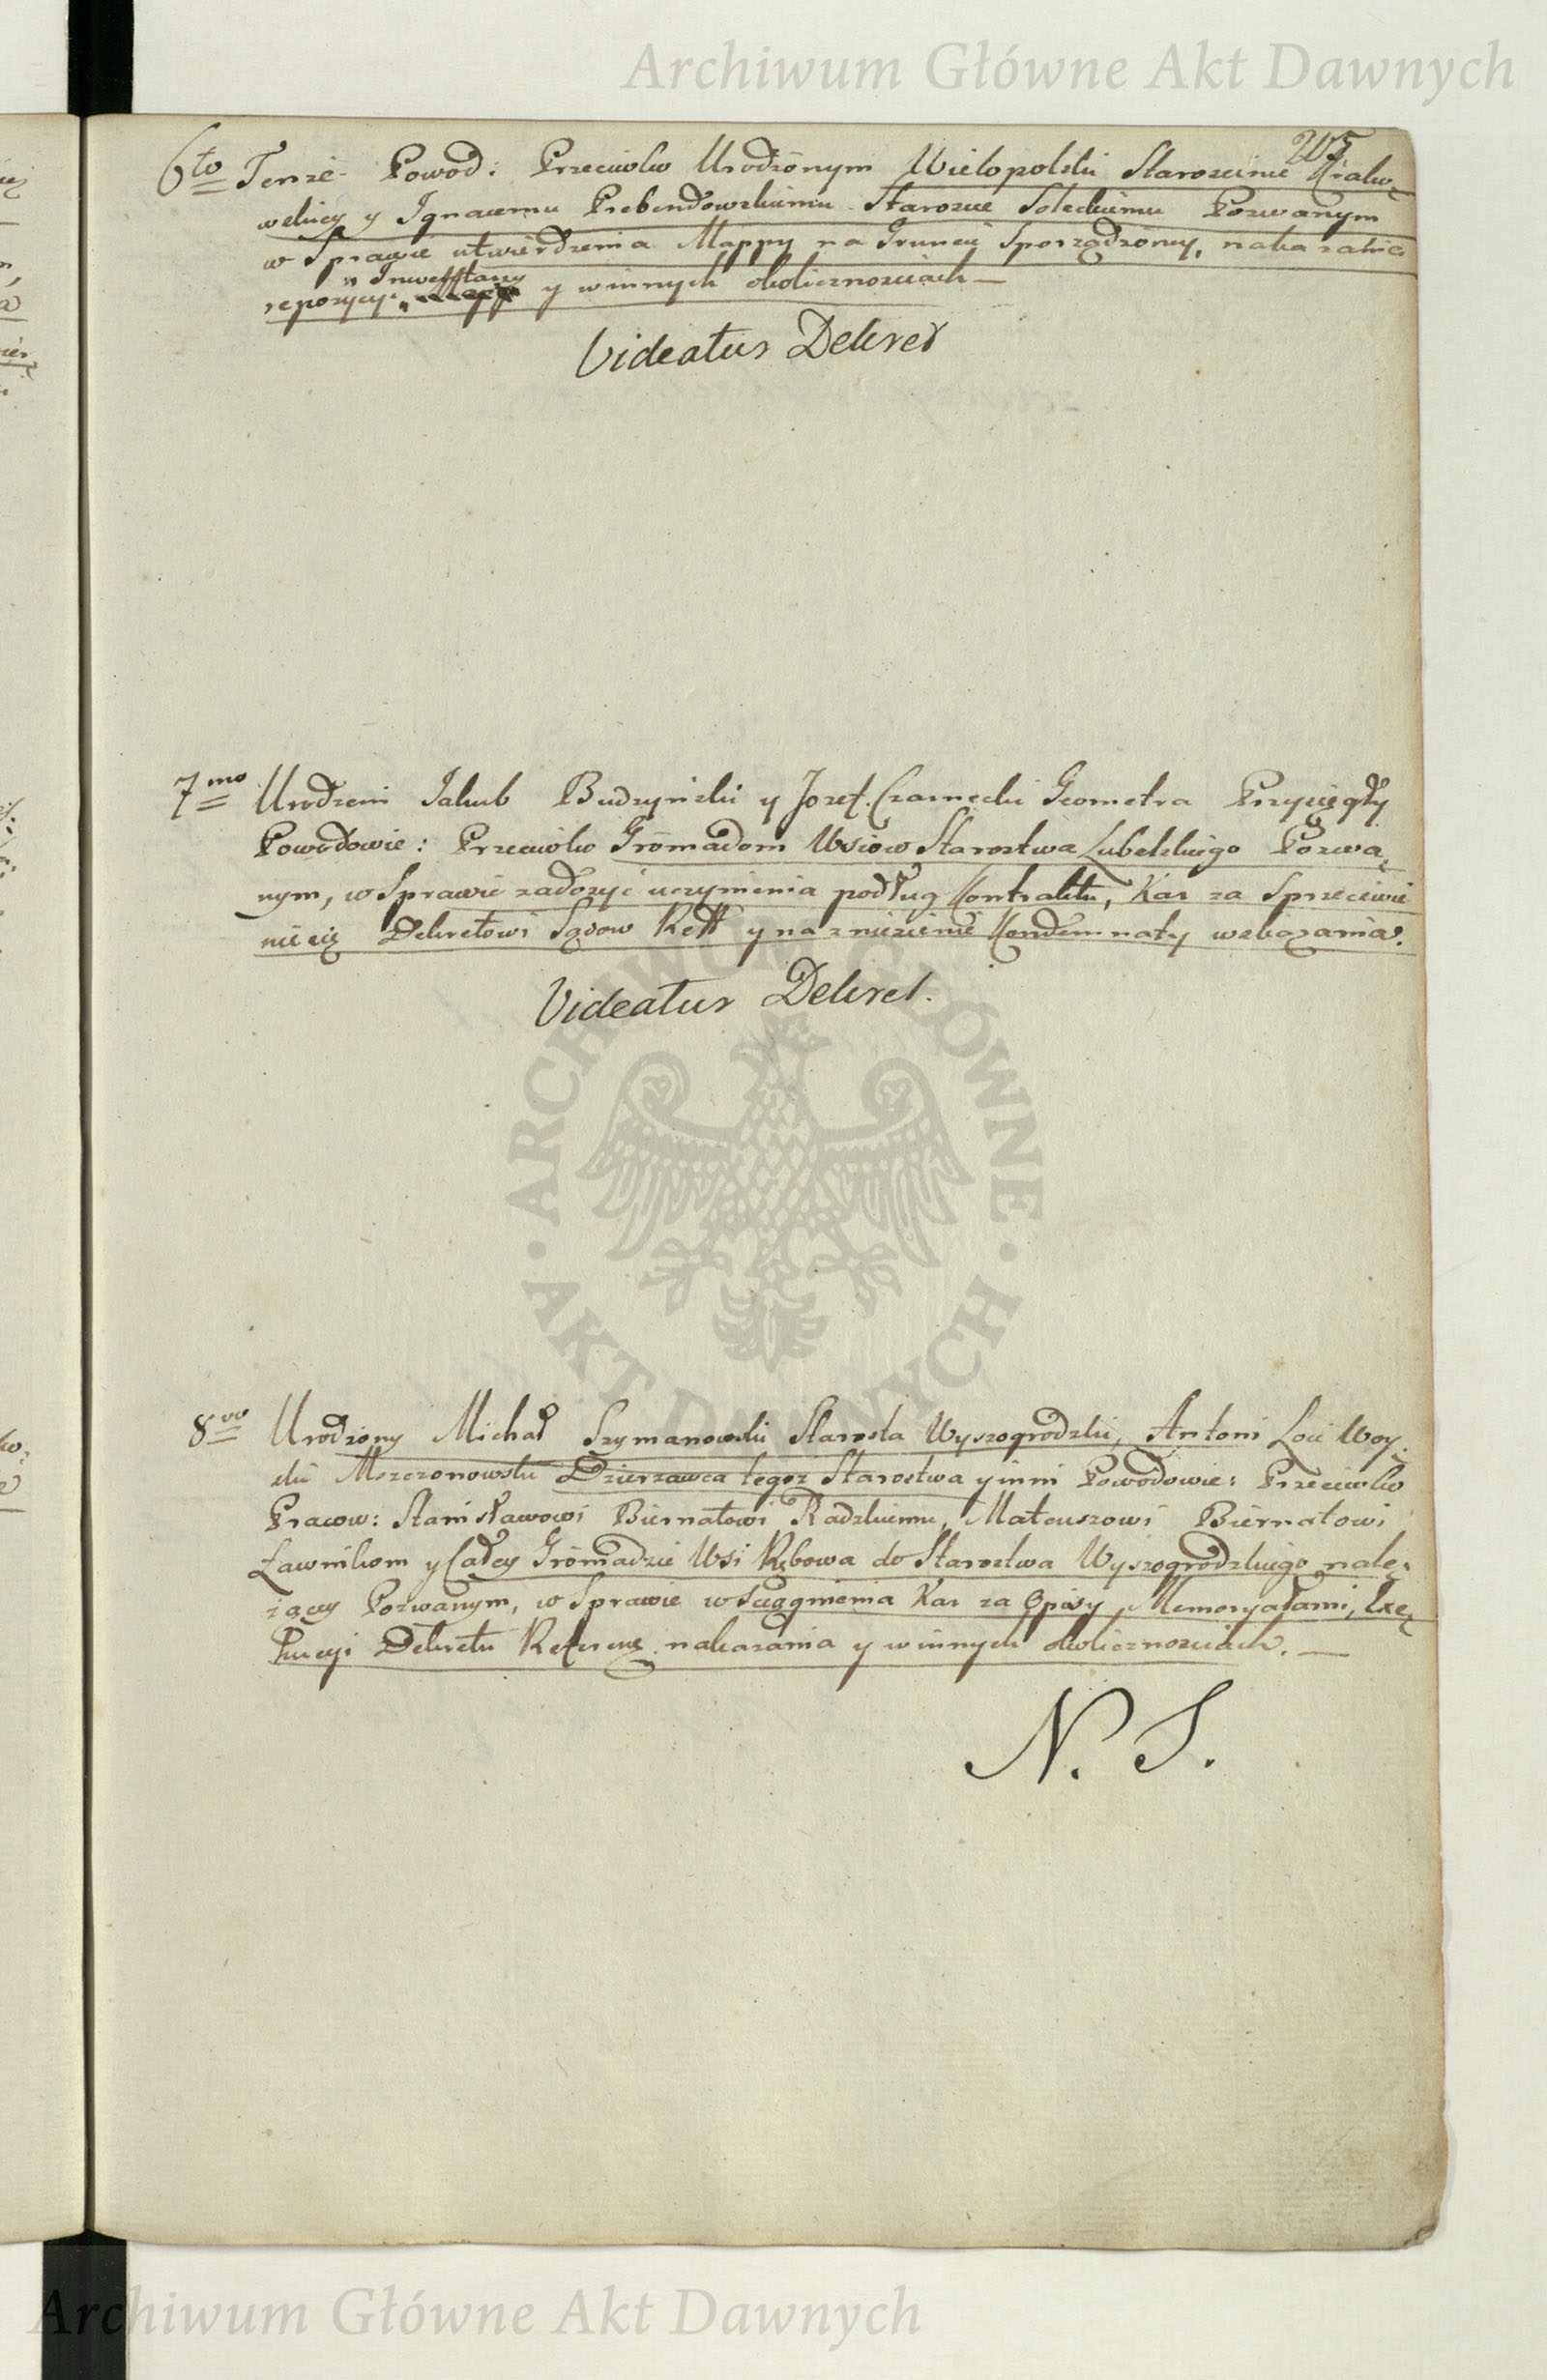 Archiwum Główne Akt Dawnych
205
6to Tenże Powod: Przeciwko Urodzonym Wielopolski Starościnie Krako,
welicy y Ignacemu Prebendowskiemu Staroście Soleckiemu Pozwanym
w Sprawie utwierdzenia Mappy na Gruncie Sporządzoney, nakazania
" Inwesstany
repozycyi " y w innych okolicznościach —
Videatur Dekret
7mo Urodzeni Jakub Budzyński y Jozef Czarnecki Geometra Przysięgły
Powodowie: Przeciwko Gromadom Wsiow Starostwa Lubelskiego Pozwa,
nym, w Sprawie zadosyć uczynienia podług Kontraktu, Kar za Sprzeciwie
nie się Dekretowi Sądow Reff y na zniesienie Kondemnaty wskazania.
Videatur Dekret.
8vo Urodzony Michał Szymanowski Starosta Wyszogrodzki, Antoni Łoć Woy,
ski Mszczonowski Dzierzawca tegoż Starostwa y inni Powodowie: Przeciwko
Pracow: Stanisławowi Biernatowi Radzkiemu, Mateuszowi Biernatowi
Ławnikom y Całey Gromadzie Wsi Rębowa do Starostwa Wyszogrodzkiego nale,
żącey Pozwanym, w Sprawie wsciągnienia Kar za Opisy Memoryałami, Exe,
kucyi Dekretu Referen: nakazania y w innych okolicznościach. —
N. S.
ARCHIWUM GŁÓWNE
AKT DAWNYCH
Archiwum Główne Akt Dawnych